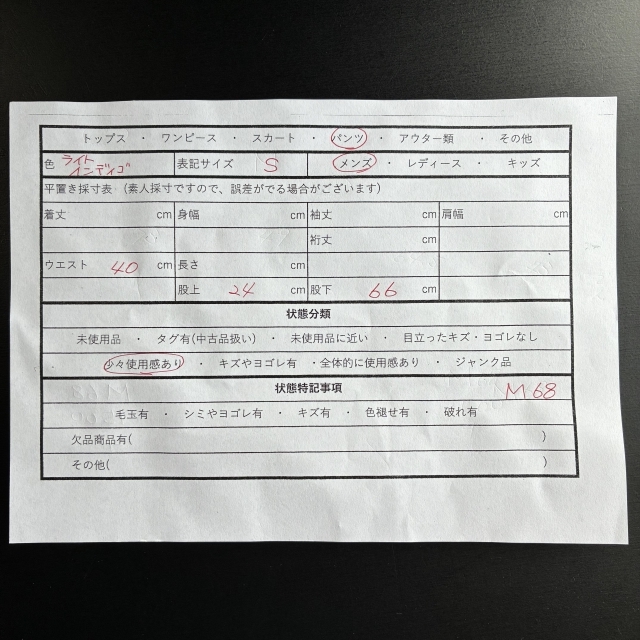 トップス ・ ワンピース ・ スカート ・ パンツ ・ アウター類 ・ その他
色 ライト インディゴ 表記サイズ S メンズ ・ レディース ・ キッズ
平置き採寸表 (素人採寸ですので、誤差がでる場合がございます)
着丈 cm 身幅 cm 袖丈 cm 肩幅 cm
裄丈 cm
ウエスト 40 cm 長さ cm
股上 24 cm 股下 66 cm
状態分類
未使用品 ・ タグ有(中古品扱い) ・ 未使用品に近い ・ 目立ったキズ・ヨゴレなし
少々使用感あり ・ キズやヨゴレ有 ・全体的に使用感あり ・ ジャンク品
状態特記事項 M68
毛玉有 ・ シミやヨゴレ有 ・ キズ有 ・ 色褪せ有 ・ 破れ有
欠品商品有( )
その他( )